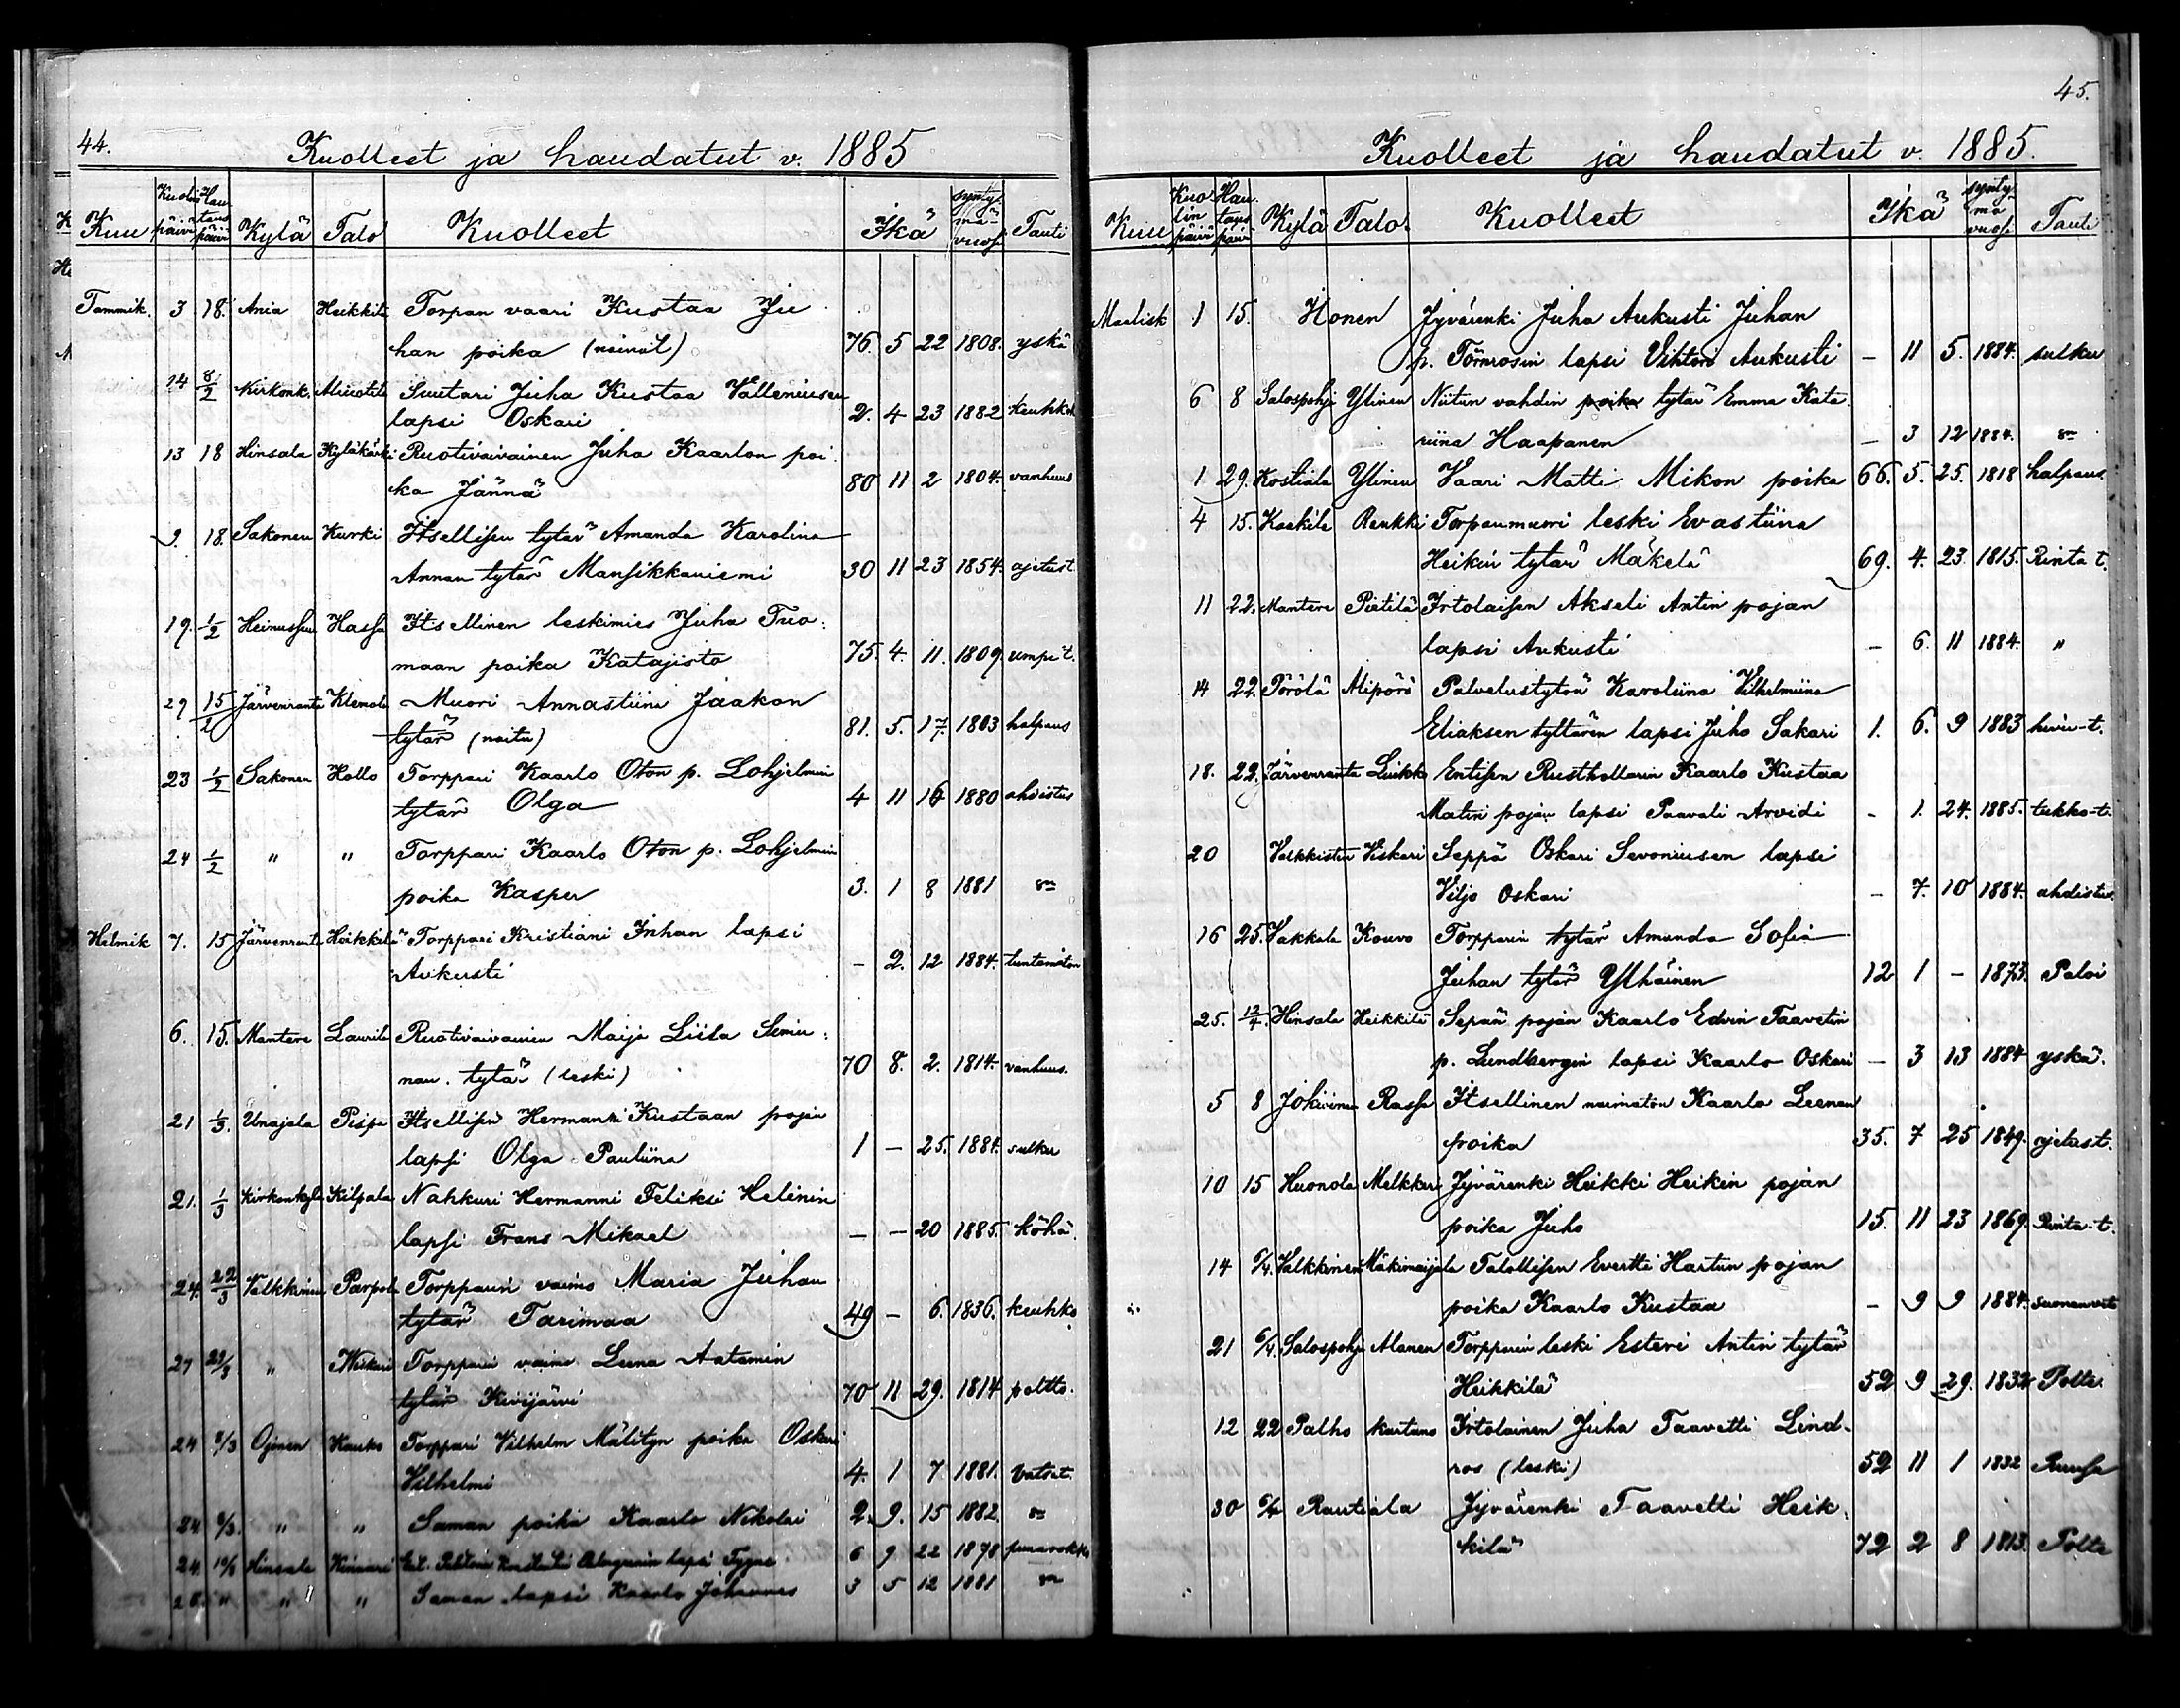 44.
Kuolleet ja haudatut v. 1885
Kuu Kuolin päivä Hau taus päivä Kylä Talo Kuolleet Ikä synty mä vuosi Tauti
Tammik. 3 18. Ania Heikkilä Torpan vaari Kustaa Ju
han poika (nainut) 76. 5 22 1808. yskä
14 8/2 Kirkonk. Suutari Juha Kustaa Valleniusen
lapsi Oskari 2. 4 23 1882 keuhko
13 18 Hinsala Ruotivaivainen Juha Kaarlon poi
ka Jännä 80 11 2 1804. vanhuus
9. 18. Sakonen Kurki Itsellisen tytär Amanda Karolina
Annan tytär Mansikkaniemi 30 11 23 1854. ajetust.
19. 1/2 Hassa Itsellinen leskimies Juha Tuo-
maan poika Katajisto 75. 4. 11. 1809. umpi t.
29 15/2 Järvenranta Klemola Muori Annastiina Jaakon
tytär (naitu) 81. 5. 17. 1803 halpaus
23 1/2 Sakonen Hollo Torppari Kaarlo Oton p. Lohjelmin
tytär Olga 4 11 16 1880 ahdistus
24 1/2 " " Torppari Kaarlo Oton p. Lohjelmin
poika Kasper 3. 1 8 1881
Helmik 7. 15 Järvenrant Heikkilä Torppari Kristiani Juhan lapsi
Aukusti - 2. 12 1884. tuntematon
6. 15. Mantere Laurila Ruotivaivainen Maija Liisa Simu
nan. tytär (leski) 70 8. 2. 1814. vanhuus.
21 1/3. Unajala Pispa Itsellisen Hermanni Kustaan pojan
lapsi Olga Pauliina 1 - 25. 1884. sulku
21. 1/3 Kirkonkylä Kilpala Nahkuri Hermanni Feliksi Helinin
lapsi Frans Mikael - - 20 1885. köhä.
24. 22/3 Valkkinen Torpparin vaimo Maria Juhan
tytär Tarimaa 49 - 6. 1836. keuhko
27 29/3 " Torpparin vaimo Leena Aatamin
tytär Kivijärvi 70 11 29. 1814 poltto.
24 8/3 Ojonen Hauko Torppari Vilhelm Mälityn poika Oskari
Vilhelmi 4. 1 7. 1881. Vatsat.
24 8/3. " " Saman poika Kaarlo Nikolai 2. 9. 15 1882.
24. Hinsala lapsi Tyyne 6 9 22 1878
" " " Saman lapsi Kaarlo Johannes 3 5 12 1881
45.
Kuolleet ja haudatut v. 1885.
Kuu Kuo lin päivä Hau taus päivä Kylä Talo. Kuolleet Ikä synty mä vuosi Tauti
Maalisk 1 15. Honen Jyvärenki Juha Aukusti Juhan
p. Törnrosin lapsi Vihtori Aukusti - 11 5. 1884. sulku
6 8 Salospohja Ylinen Niitun vahdin poika tytär Emma Kata
riina Haapanen - 3 12 1884.
1. 29. Kostiala Ylinen Vaari Matti Mikon poika 66. 5. 25. 1818 halpaus.
4 15. Kaekila Renkki Torpanmuori leski Evastiina
Heikin tytär Mäkelä 69. 4. 23 1815. Rinta t.
11 22. Mantere Pietilä Irtolaisen Akseli Antin pojan
lapsi Aukusti - 6. 11 1884. "
14 22. Pörölä Alipörö Palvelustytön Karoliina Vilhelmiina
Eliaksen tyttären lapsi Juho Sakari 1. 6. 9 1883
18. 22. Järvenranta Entisen Rusthollarin Kaarlo Kustaa
Matin pojan lapsi Paavali Arvidi - 1. 24. 1885. tukko-t.
20 Valkkisten Viskari Seppä Oskari Sevoniusen lapsi
Viljo Oskari - 7. 10 1884. ahdistus
16 25. Vakkala Kouvo Torpparin tytär Amanda Sofia
Juhan tytär Ylhäinen 12 1 - 1873. Palvi
25. 12/4. Hinsala Heikkilä Sepän pojan Kaarlo Edvin Taavetin
p. Lundbergin lapsi Kaarlo Oskari - 3 13 1884 yskä.
5 8 Jokioinen Rassa Itsellinen naimaton Kaarlo Leenan
poika 35. 7 25 1849. ajetust.
10 15 Huonola Melkkeri Jyvärenki Heikki Heikin pojan
poika Juho 15. 11 23 1869. Rinta-t.
14 6/4. Valkkinen Mäkimaijala Talollisen Evertti Hartun pojan
poika Kaarlo Kustaa - 9 9 1884. suonenveto
21 6/4. Salospohja Alanen Torpparin leski Esteri Antin tytär
Heikkilä 52 9 29. 1832 Polte.
12 22 Palho kartano Irtolainen Juha Taavetti Lind-
ros (leski) 52 11 1 1832 Ruusu
30 6/4 Rautiala Jyvärenki Taavetti Heik-
kilä 72 2 8 1813. Polte